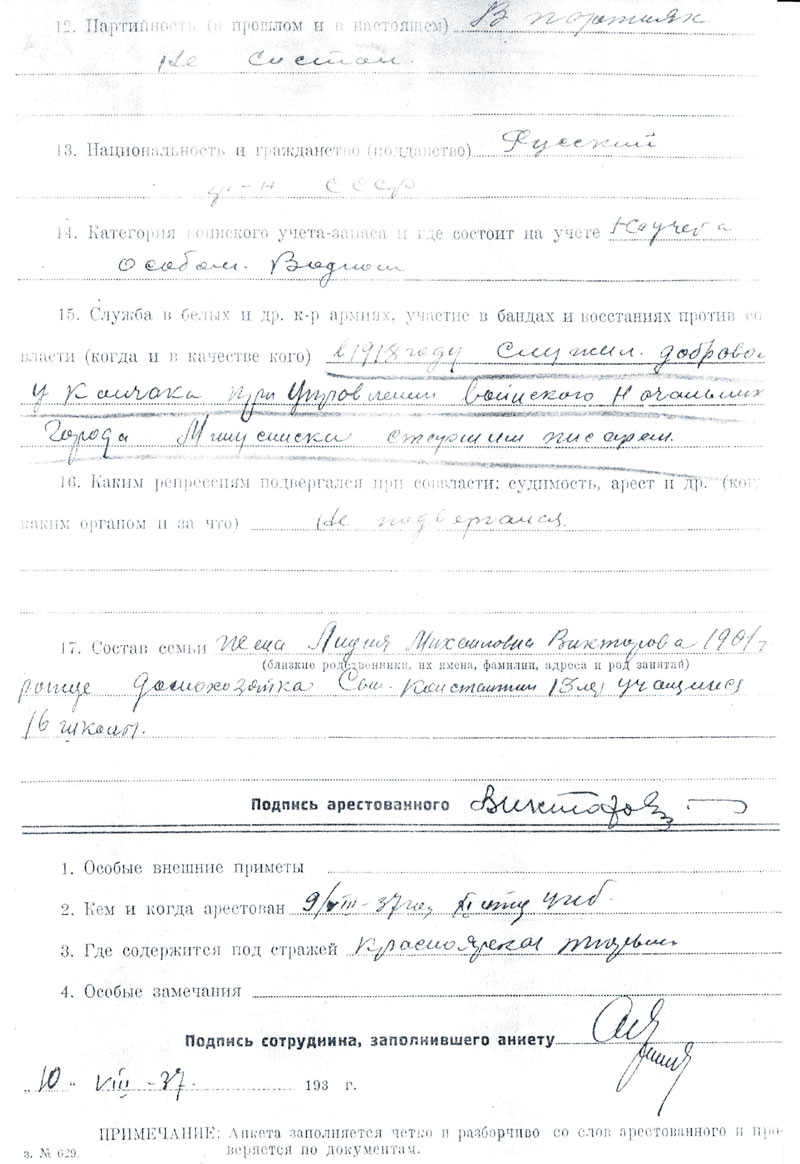 12. Партийность (в прошлом и в настоящем) В партиях
не состоял.
13. Национальность и гражданство (подданство) Русский
гр-н СССР
14. Категория воинского учета-запаса и где состоит на учете На учете
особом.
15. Служба в белых и др. к-р армиях, участие в бандах и восстаниях против со
власти (когда и в качестве кого) в 1918 году служил. доброво
у Колчака при Управлении Воинского Начальник
Города Минусинска старшим писарем.
16. Каким репрессиям подвергался при соввласти: судимость, арест и др. (ког
каким органом и за что) Не подвергался.
17. Состав семьи жена Лидия Михайловна Викторова 1901 г
(близкие родственники, их имена, фамилии, адреса и род занятий)
домохозяйка Сын. Константин 13 лет учащийся
16 школы.
Подпись арестованного Викторов
1. Особые внешние приметы
2. Кем и когда арестован 9/VIII-37 год
3. Где содержится под стражей Красноярская тюрьма
4. Особые замечания
Подпись сотрудника, заполнившего анкету
„10" VIII-37. 193 г.
ПРИМЕЧАНИЕ: Анкета заполняется четко и разборчиво со слов арестованного и про-
з. № 629. веряется по документам.